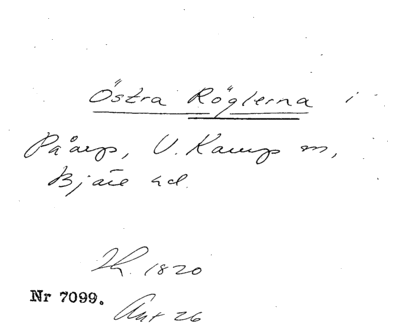 Östra Röglerna i
Påarp, V. Karup sn,
Bjäre hd.
1820
Nr 7099.
Akt 26